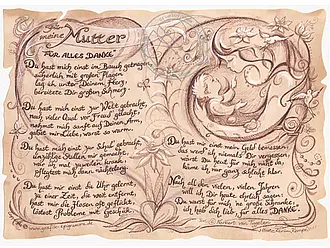 An meine Mutter
FÜR ALLES DANKE
Du hast mich einst im Bauch getragen,
sicherlich mit großen Plagen
lag ich unter Deinem Herz,
bereitete Dir großen Schmerz.
Du hast mich einst zur Welt gebracht,
nach vieler Qual vor Freud gelacht,
nahmst mich sanft auf Deinen Arm,
gabst mir Liebe, warst so warm.
Du hast mich einst zur Schul gebracht,
unzählige Stullen mir gemacht,
war ich mal zwischendrin krank,
pflegtest mich dann
Du hast mir einst die Uhr gelernt,
zu einer Zeit, die weit entfernt,
hast mir die Hosen oft geflickt,
löstest Probleme mit Geschick.
Du hast mir einst mein Geld bemessen,
das werd' ich niemals Dir vergessen,
wärst Du heut für mich nicht da,
käme ich nur ganz schlecht klar.
Nach all den vielen, vielen Jahren
will ich Dir heute ehrlich sagen:
Du warst für mich ne große Schranke,
ich hab dich lieb, für alles DANKE.